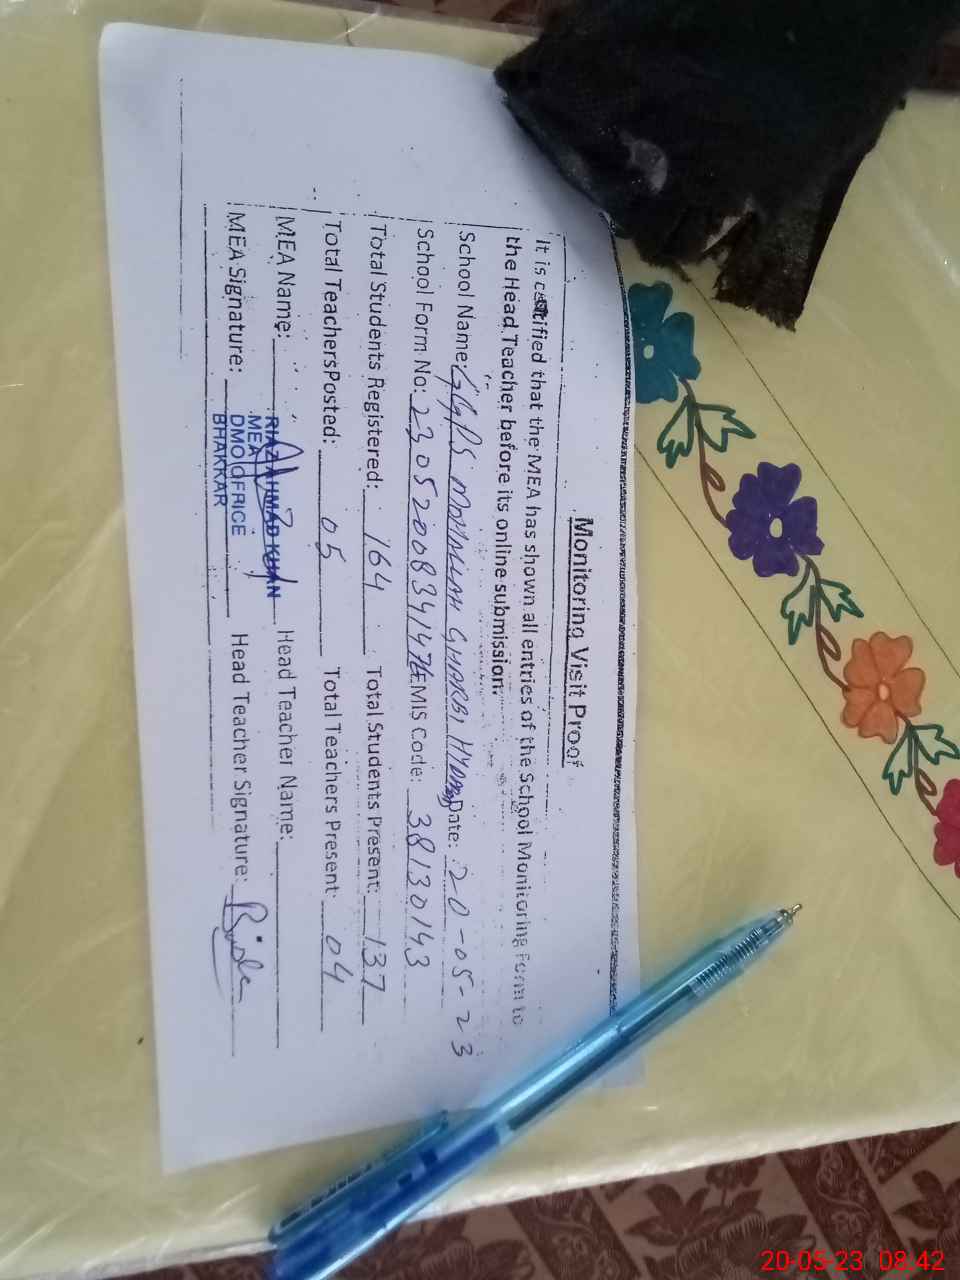 Monitoring Visit Proof
It is certified that the MEA has shown all entries of the School Monitoring Form to
the Head Teacher before its online submission.
School Name: GGPS Gharbi Date: 20-05-23
School Form No: 23052008341476 EMIS Code: 38130143
Total Students Registered: 164 Total Students Present: 137
Total TeachersPosted: 05 Total Teachers Present: 04
MEA Name: RIAZ AHMAD KHAN Head Teacher Name:
MEA
MEA Signature: DMO OFFICE Head Teacher Signature:
BHAKKAR
20-05-23 08:42